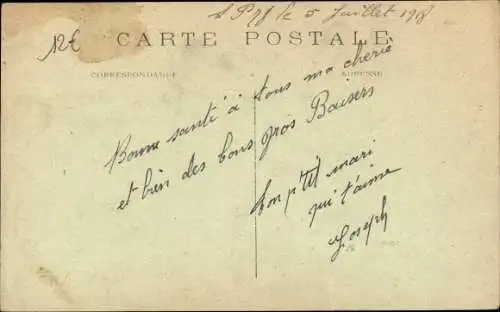 le 5 Juillet 19
12€
CARTE POSTALE
CORRESPONDANCE
ADRESSE
Bonne santé à tous ma cherie
et bien des bons gros Baisers
ton p'tit mari
qui t'aime
Joseph